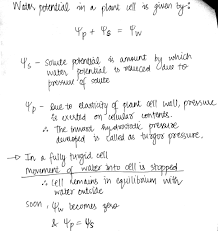 Water potential in a plant cell is given by:-
Ψp + Ψs = Ψw
Ψs - Solute potential is amount by which
water potential is reduced due to
pressure of solute
Ψp - Due to elasticity of plant cell wall, pressure
is exerted on cellular contents.
∴ The inward hydrostatic pressure
developed is called as turgor pressure.
→ In a fully turgid cell
movement of water into cell is stopped
∴ Cell remains in equilibrium with
water outside
Soon, Ψw becomes zero
& Ψp = Ψs